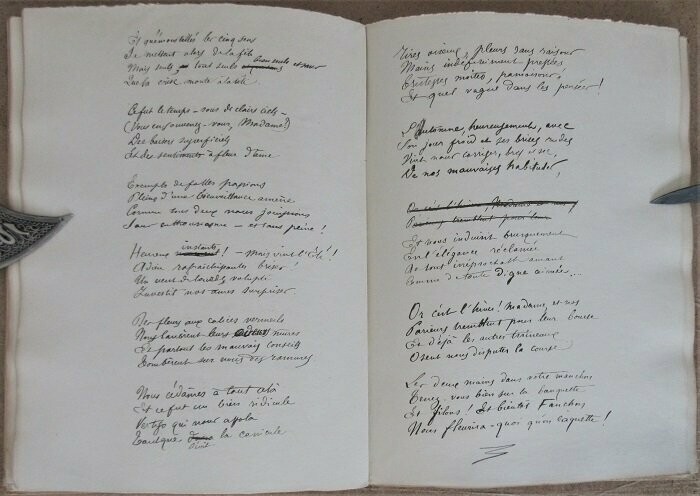 Et qu'émoustillés les cinq sens
Se mettent alors de la fête
Mais seuls, tout seuls bien seuls et sans
Que la crise monte à la tête.
Ce fut le temps – sous de clairs ciels –
(Vous en souvenez-vous, Madame?)
Des baisers superficiels
Et des sentiments à fleur d'âme.
Exempts de folles passions
Pleins d'une bienveillance amène
Comme tous deux nous jouissions
Sans enthousiasme – et sans peine!
Heureux instants! – mais vint l'Été!
Adieu rafraîchissantes brises!
Un vent de lourde volupté
Investit nos âmes surprises
Des fleurs aux calices vermeils
Nous lancèrent leurs odeurs mûres
Et partout les mauvais conseils
Tombèrent sur nous des ramures
Nous cédâmes à tout cela
Et ce fut un bien ridicule
Vertigo qui nous affola
Tant que la canicule
Rires oiseux, pleurs sans raison
Mains indéfiniment pressées
Tristesses moites, pamoisons,
Et quel vague dans les pensées!
L'Automne, heureusement, avec
Son jour froid et ses bises rudes
Vint nous corriger, bref et sec,
De nos mauvaises habitudes,
Or c'est l'hiver Madame et nos
Parieurs tremblent pour leur
Et nous induisit brusquement
En l'élégance réclamée
De tout irréprochable amant
Comme de toute digne aimée...
Or c'est l'hiver! Madame, et nos
Parieurs tremblent pour leur bourse
Et déjà les autres traîneaux
Osent nous disputer la course
Les deux mains dans votre manchon
Tenez-vous bien sur la banquette
Et filons! Et bientôt Fanchon
Nous fleurira – quoi qu'on caquette!